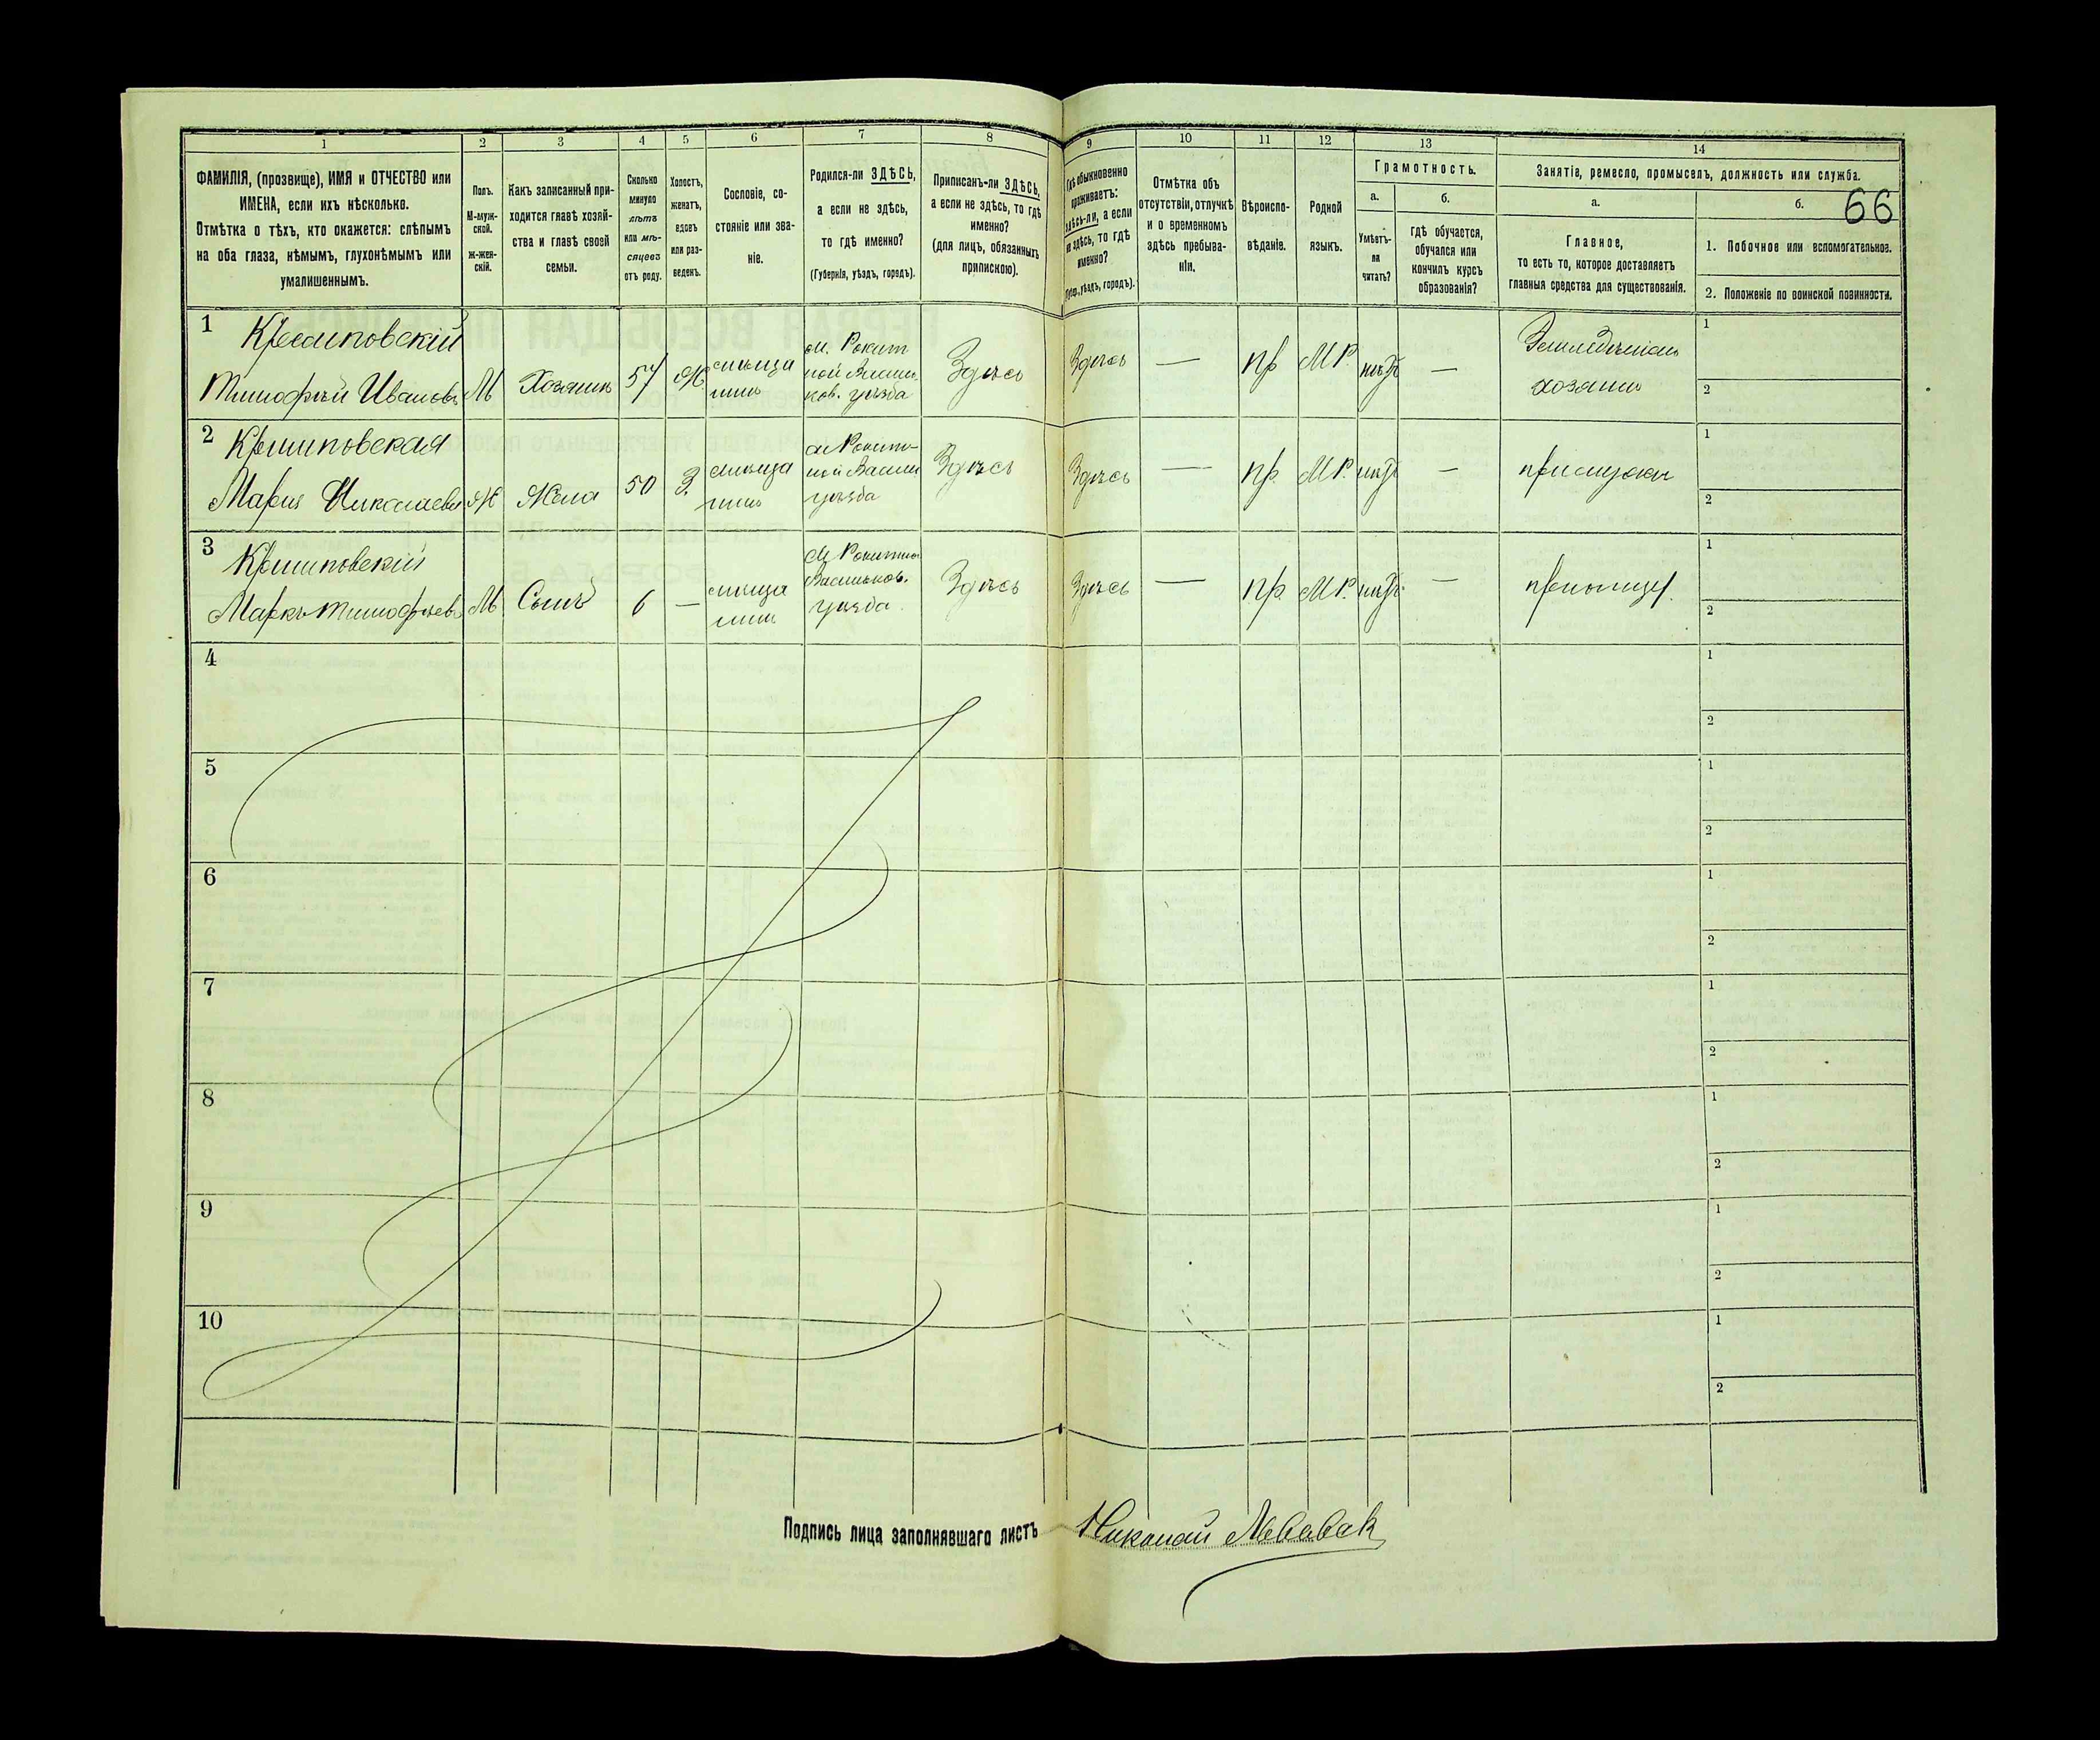 1 2 3 4 5 6 7 8 9 10 11 12 13 14
ФАМИЛІЯ, (прозвище), ИМЯ и ОТЧЕСТВО или
ИМЕНА, если ихъ нѣсколько.
Отмѣтка о тѣхъ, кто окажется: слѣпымъ
на оба глаза, нѣмымъ, глухонѣмымъ или
умалишеннымъ.
Полъ.
М-муж-
ской.
ж-жен-
скій.
Какъ записанный при-
ходится главѣ хозяй-
ства и главѣ своей
семьи.
Сколько
минуло
лѣтъ
или мѣ-
сяцевъ
отъ роду.
Холостъ,
женатъ,
вдовъ
или раз-
веденъ.
Сословіе, со-
стояніе или зва-
ніе.
Родился-ли ЗДѢСЬ,
а если не здѣсь,
то гдѣ именно?
(Губернія, уѣздъ, городъ).
Приписанъ-ли ЗДѢСЬ,
а если не здѣсь, то гдѣ
именно?
(для лицъ, обязанныхъ
припискою).
Гдѣ обыкновенно
проживаетъ:
здѣсь-ли, а если
не здѣсь, то гдѣ
именно?
(Губер., уѣздъ, городъ).
Отмѣтка объ
отсутствіи, отлучкѣ
и о временномъ
здѣсь пребыва-
ніи.
Вѣроиспо-
вѣданіе.
Родной
языкъ.
Грамотность.
а.
Умѣетъ-
ли
читать?
б.
гдѣ обучается,
обучался или
кончилъ курсъ
образованія?
Занятіе, ремесло, промыселъ, должность или служба.
а.
Главное,
то есть то, которое доставляетъ
главныя средства для существованія.
б. 66
1. Побочное или вспомогательное.
2. Положеніе по воинской повинности.
1
Тимофѣй Ивановъ М Хозяинъ 57 Ж.
м. Рокит
ной Василь
ков. уѣзда
Здѣсь Здѣсь — пр М.Р. нѣтъ —
хозяинъ
1
2
2 Крыиповская
Марія Николаева Ж Жена 50 З.
м Рокит-
ной Васил
уѣзда
Здѣсь Здѣсь — пр. М.Р. нѣтъ —
1
2
3
Маркъ Тимофѣевъ М Сынъ 6 —
м Рокитно
Васильков.
уѣзда
Здѣсь Здѣсь — пр. М.Р. нѣтъ —
1
2
4
1
2
5
1
2
6
1
2
7
1
2
8
1
2
9
1
2
10
1
2
Подпись лица заполнявшаго листъ Николай